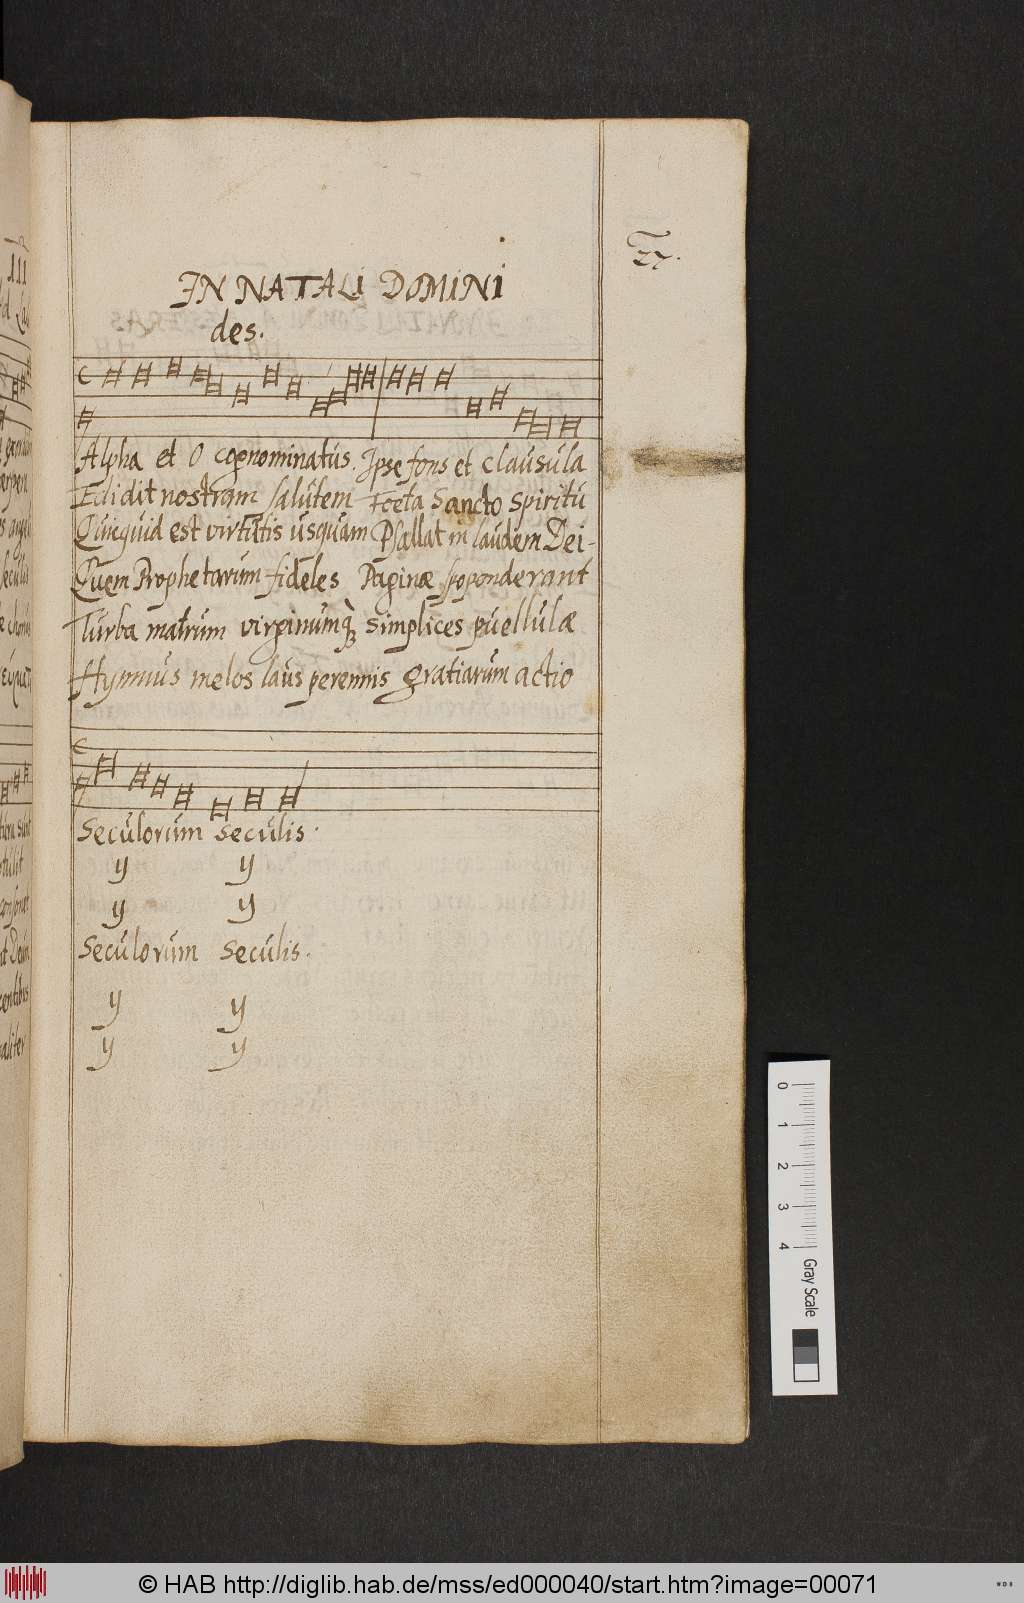 IN NATALI DOMINI
des.
Alpha et O cognominatus. Ipse fons et clausula
Edidit nostram salutem Foeta Sancto Spiritu
Quicquid est virtutis usquam Psallat in laudem Dei-
Quem Prophetarum fideles Paginæ spoponderant
Turba matrum virginumq; simplices puellulæ
Hymnus melos laus perennis gratiarum actio
Seculorum seculis.
ij ij
ij ij
Seculorum Seculis.
ij ij
ij ij
0 1 2 3 4 Gray Scale
© HAB http://diglib.hab.de/mss/ed000040/start.htm?image=00071